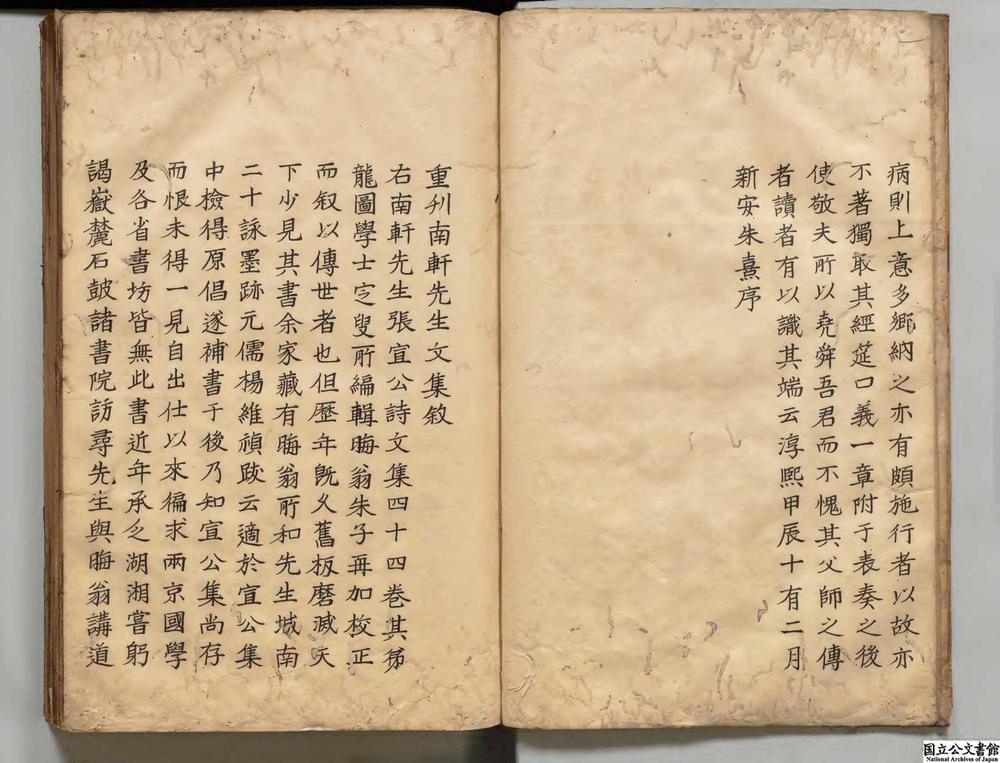 病則上意多鄉納之亦有頗施行者以故亦
不著獨取其經莚口義一章附于表奏之後
使敬夫所以堯舜吾君而不愧其父師之傳
者讀者有以識其端云淳熙甲辰十有二月
新安朱熹序
重刋南軒先生文集敘
右南軒先生張宜公詩文集四十四卷其弟
龍圖學士定叟所編輯晦翁朱子再加校正
而叙以傳世者也但歷年旣久舊板磨滅天
下少見其書余家藏有晦翁所和先生城南
二十詠墨跡元儒楊維禎跋云適於宜公集
中檢得原倡遂補書于後乃知宜公集尚存
而恨未得一見自出仕以來徧求兩京國學
及各省書坊皆無此書近年承乏湖湘嘗躬
謁嶽麓石皷諸書院訪尋先生與晦翁講道
国立公文書館
National Archives of Japan